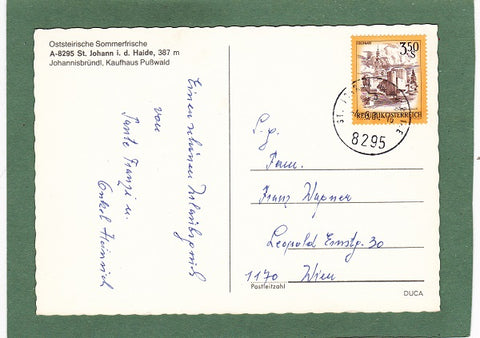 Oststeirische Sommerfrische
A-8295 St. Johann i. d. Haide, 387 m
Johannisbründl, Kaufhaus Pußwald
Einen schönen Urlaubsgruß
von
Tante Franzi u.
Onkel Heinrich
3,50
S
REPUBLIK ÖSTERREICH
8295
Fam.
Franz Wagner
Leopold Ernstg. 30
1170 Wien
Postleitzahl
DUCA